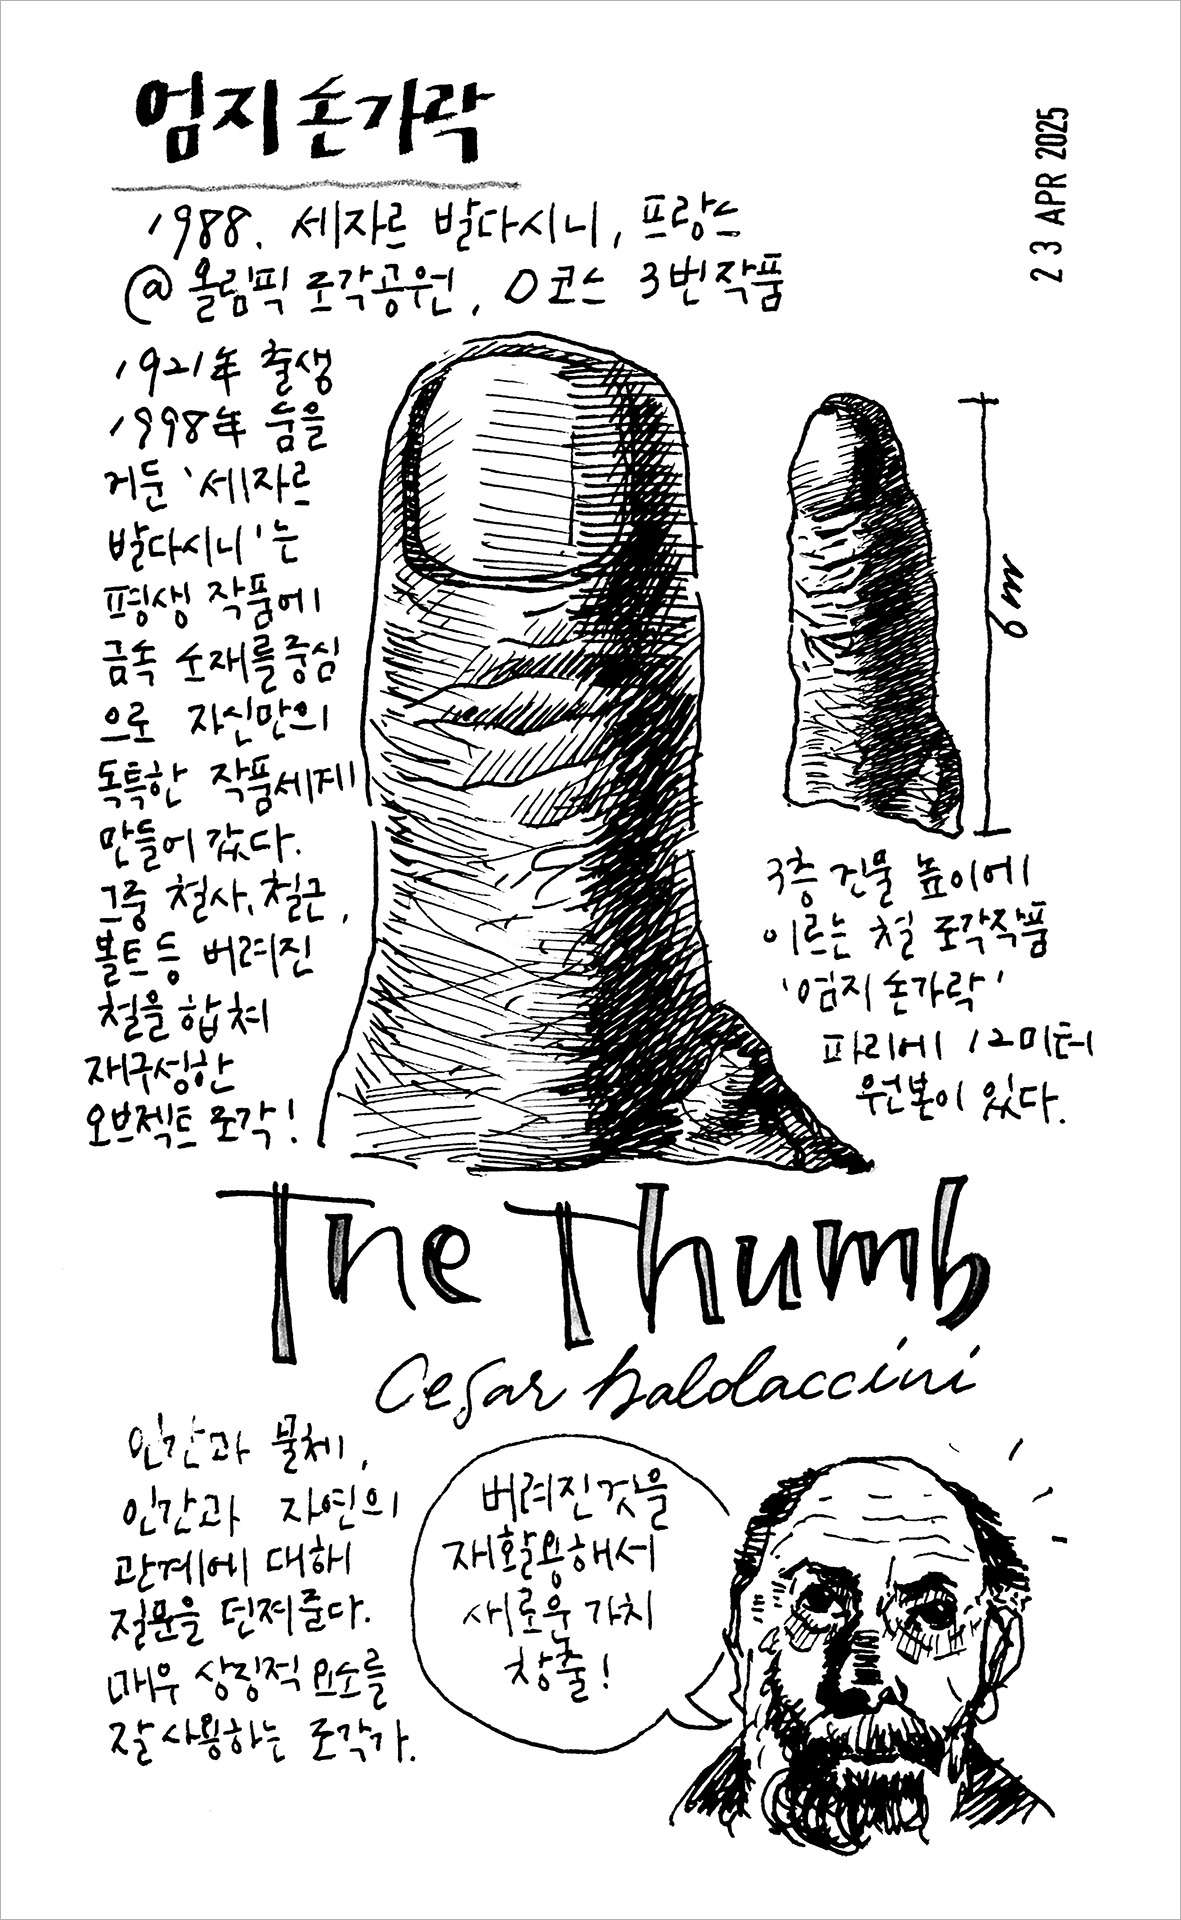 엄지손가락
23 APR 2025
1988. 세자르 발다시니, 프랑스
@ 올림픽 조각공원, D코스 3번작품
1921年 출생
1998年 숨을
거둔 '세자르
발다시니'는
평생 작품에
금속 소재를 중심
으로 자신만의
독특한 작품세계
만들어 갔다.
그중 철사, 철근,
볼트 등 버려진
철을 합쳐
재구성한
오브젝트 조각!
6m
3층 건물 높이에
이르는 철 조각작품
'엄지손가락'
파리에 12미터
원본이 있다.
The Thumb
Cesar baldaccini
인간과 물체,
인간과 자연의
관계에 대해
질문을 던져준다.
매우 상징적 요소를
잘 사용하는 조각가.
버려진 것을
재활용해서
새로운 가치
창출!